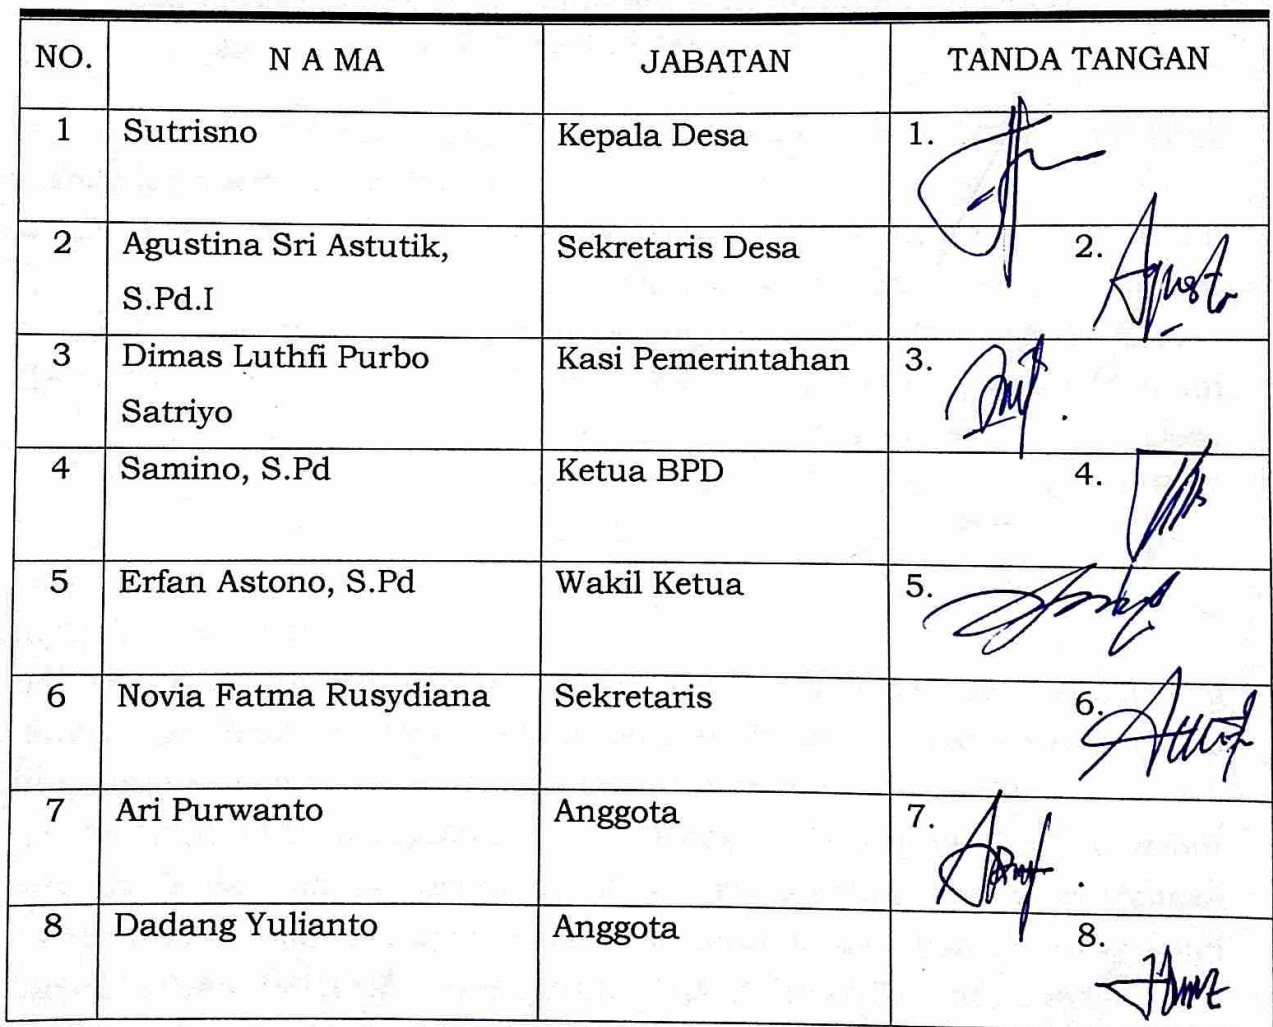 NO. N A M A JABATAN TANDA TANGAN
1 Sutrisno Kepala Desa 1.
2 Agustina Sri Astutik, Sekretaris Desa 2.
S.Pd.I
3 Dimas Luthfi Purbo Kasi Pemerintahan 3.
Satriyo
4 Samino, S.Pd Ketua BPD 4.
5 Erfan Astono, S.Pd Wakil Ketua 5.
6 Novia Fatma Rusydiana Sekretaris 6.
7 Ari Purwanto Anggota 7.
8 Dadang Yulianto Anggota 8.